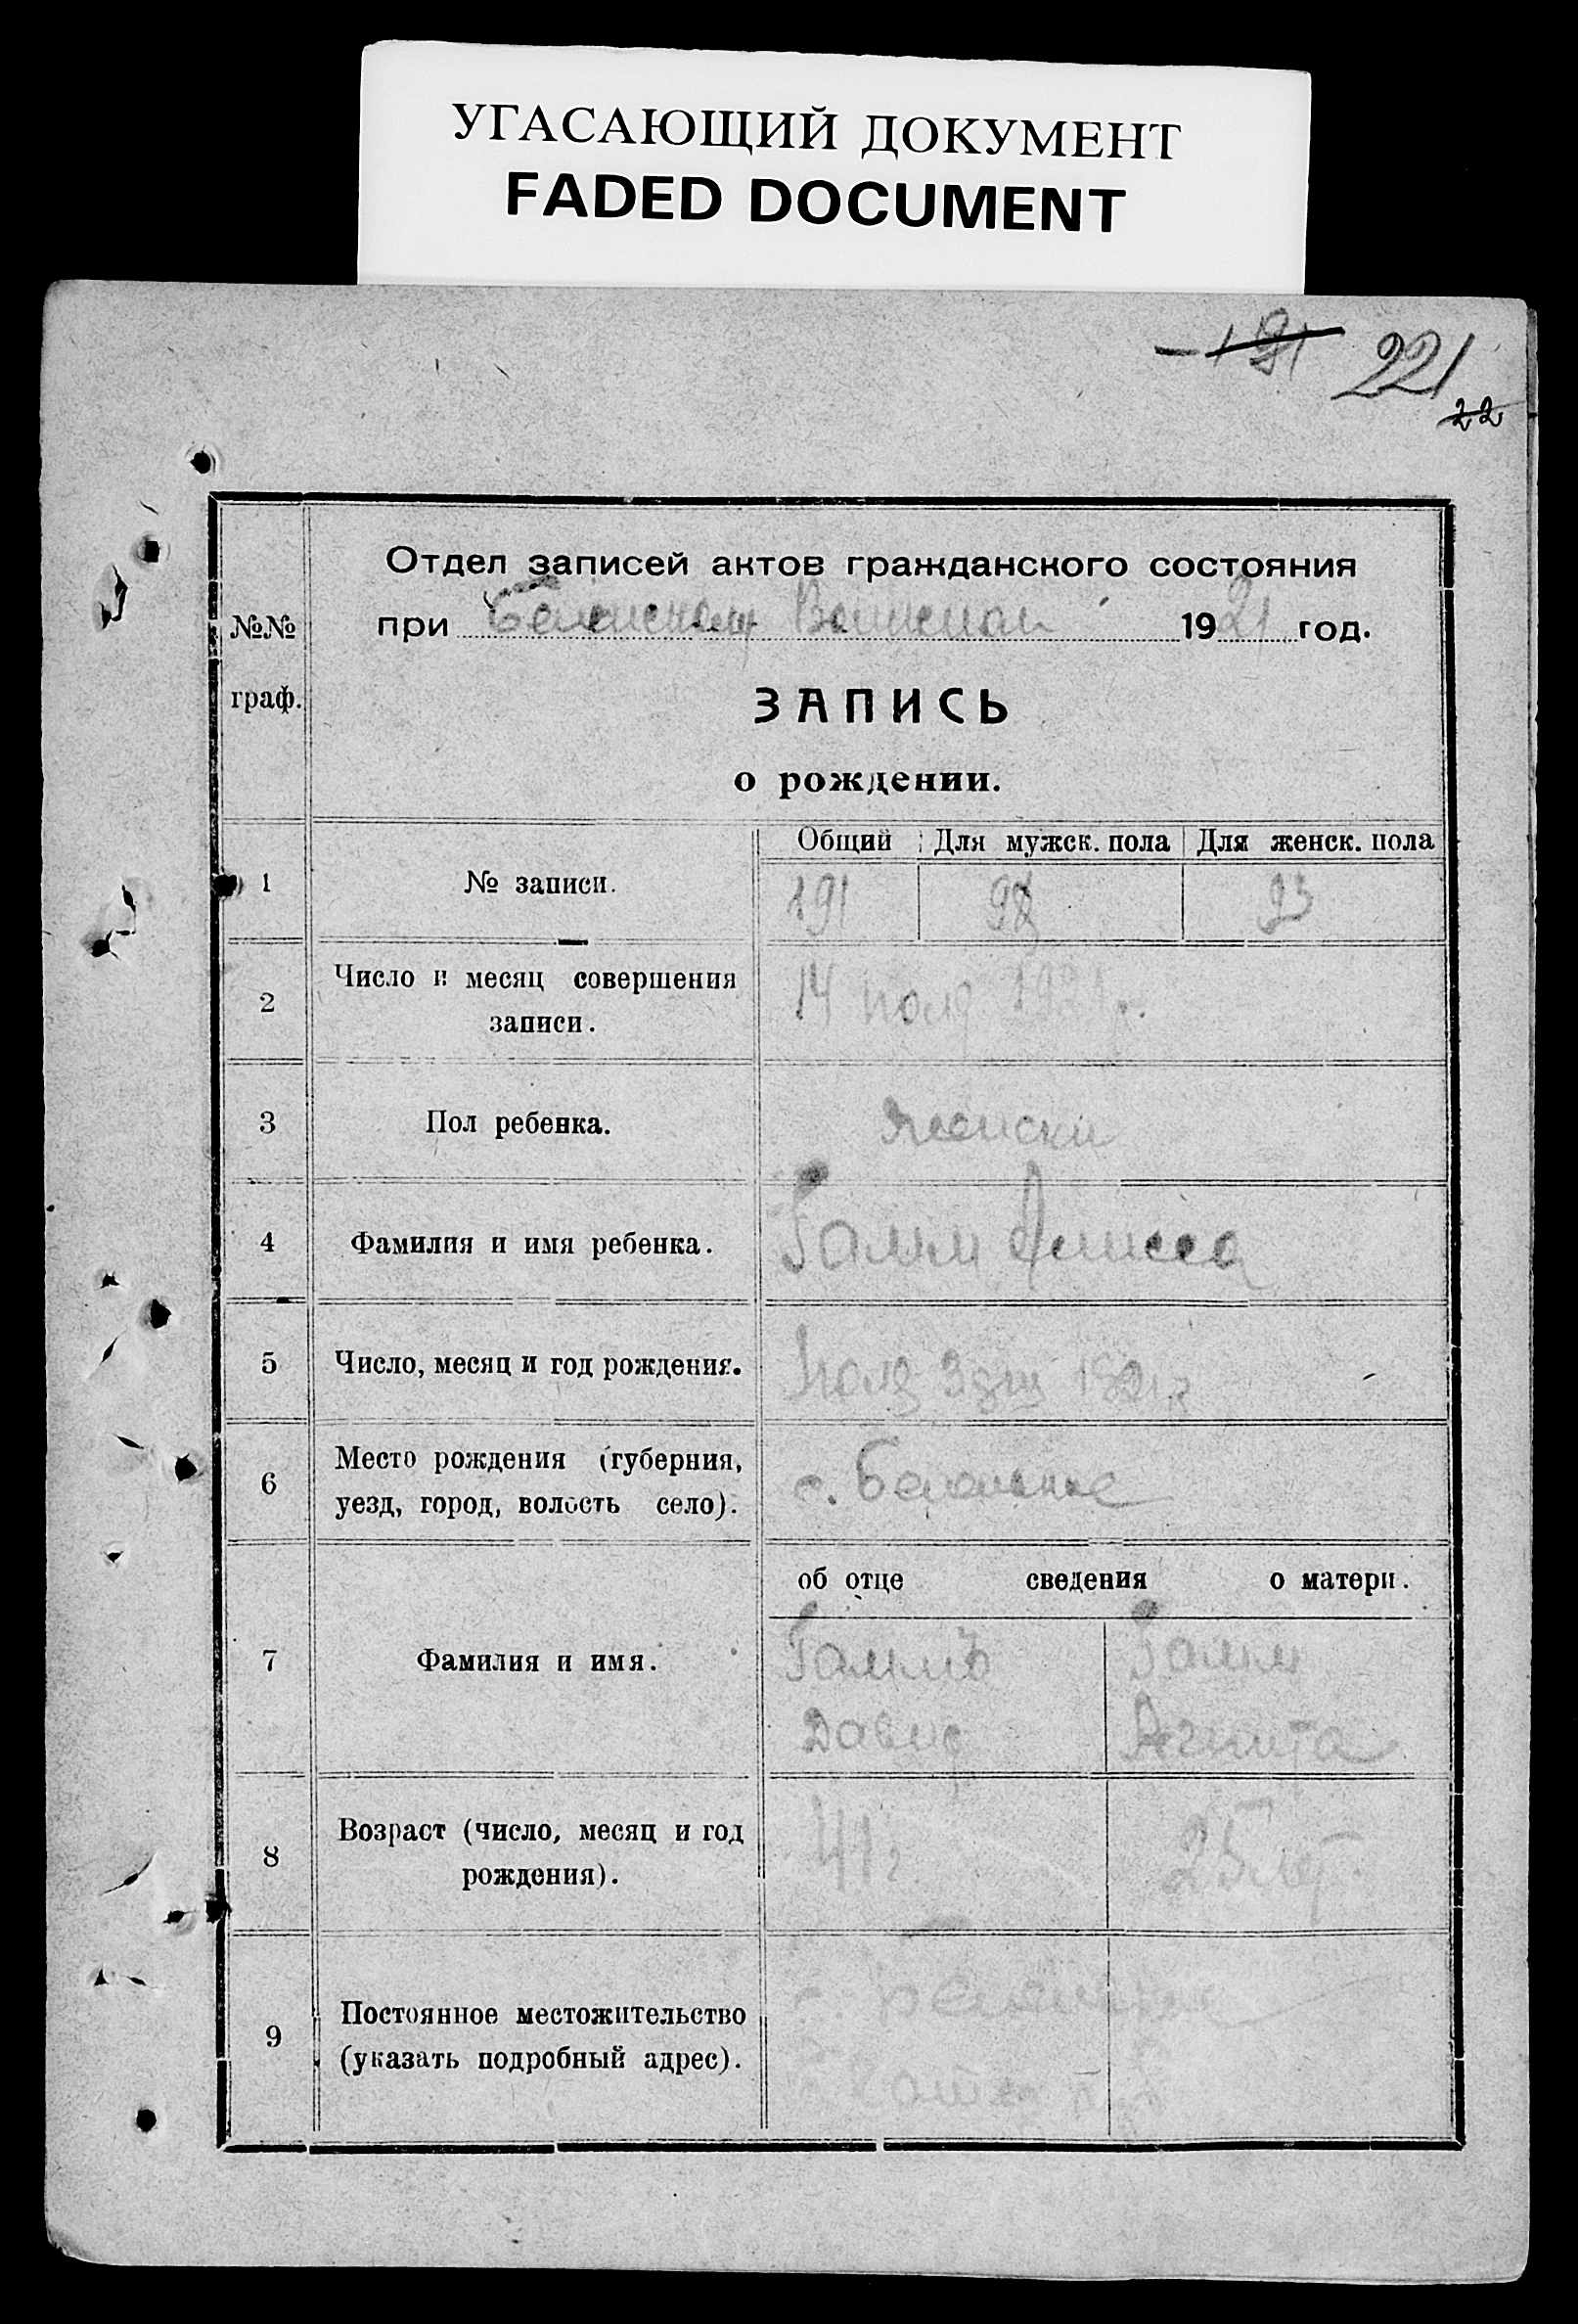 УГАСАЮЩИЙ ДОКУМЕНТ
FADED DOCUMENT
191 221
22
Отдел записей актов гражданского состояния
при 1921 год.
№№
граф.
ЗАПИСЬ
о рождении.
Общий Для мужск. пола Для женск. пола
1 № записи. 191 98 93
2 Число и месяц совершения
записи. 14 1921 г.
3 Пол ребенка. женски
4 Фамилия и имя ребенка. Гамм
5 Число, месяц и год рождения. 1921 г
6 Место рождения (губерния,
уезд, город, волость село). с.
об отце сведения о матери.
7 Фамилия и имя. Гаммъ Гамм
Давид
8 Возраст (число, месяц и год
рождения). 41 г 25 лет
9 Постоянное местожительство
(указать подробный адрес).